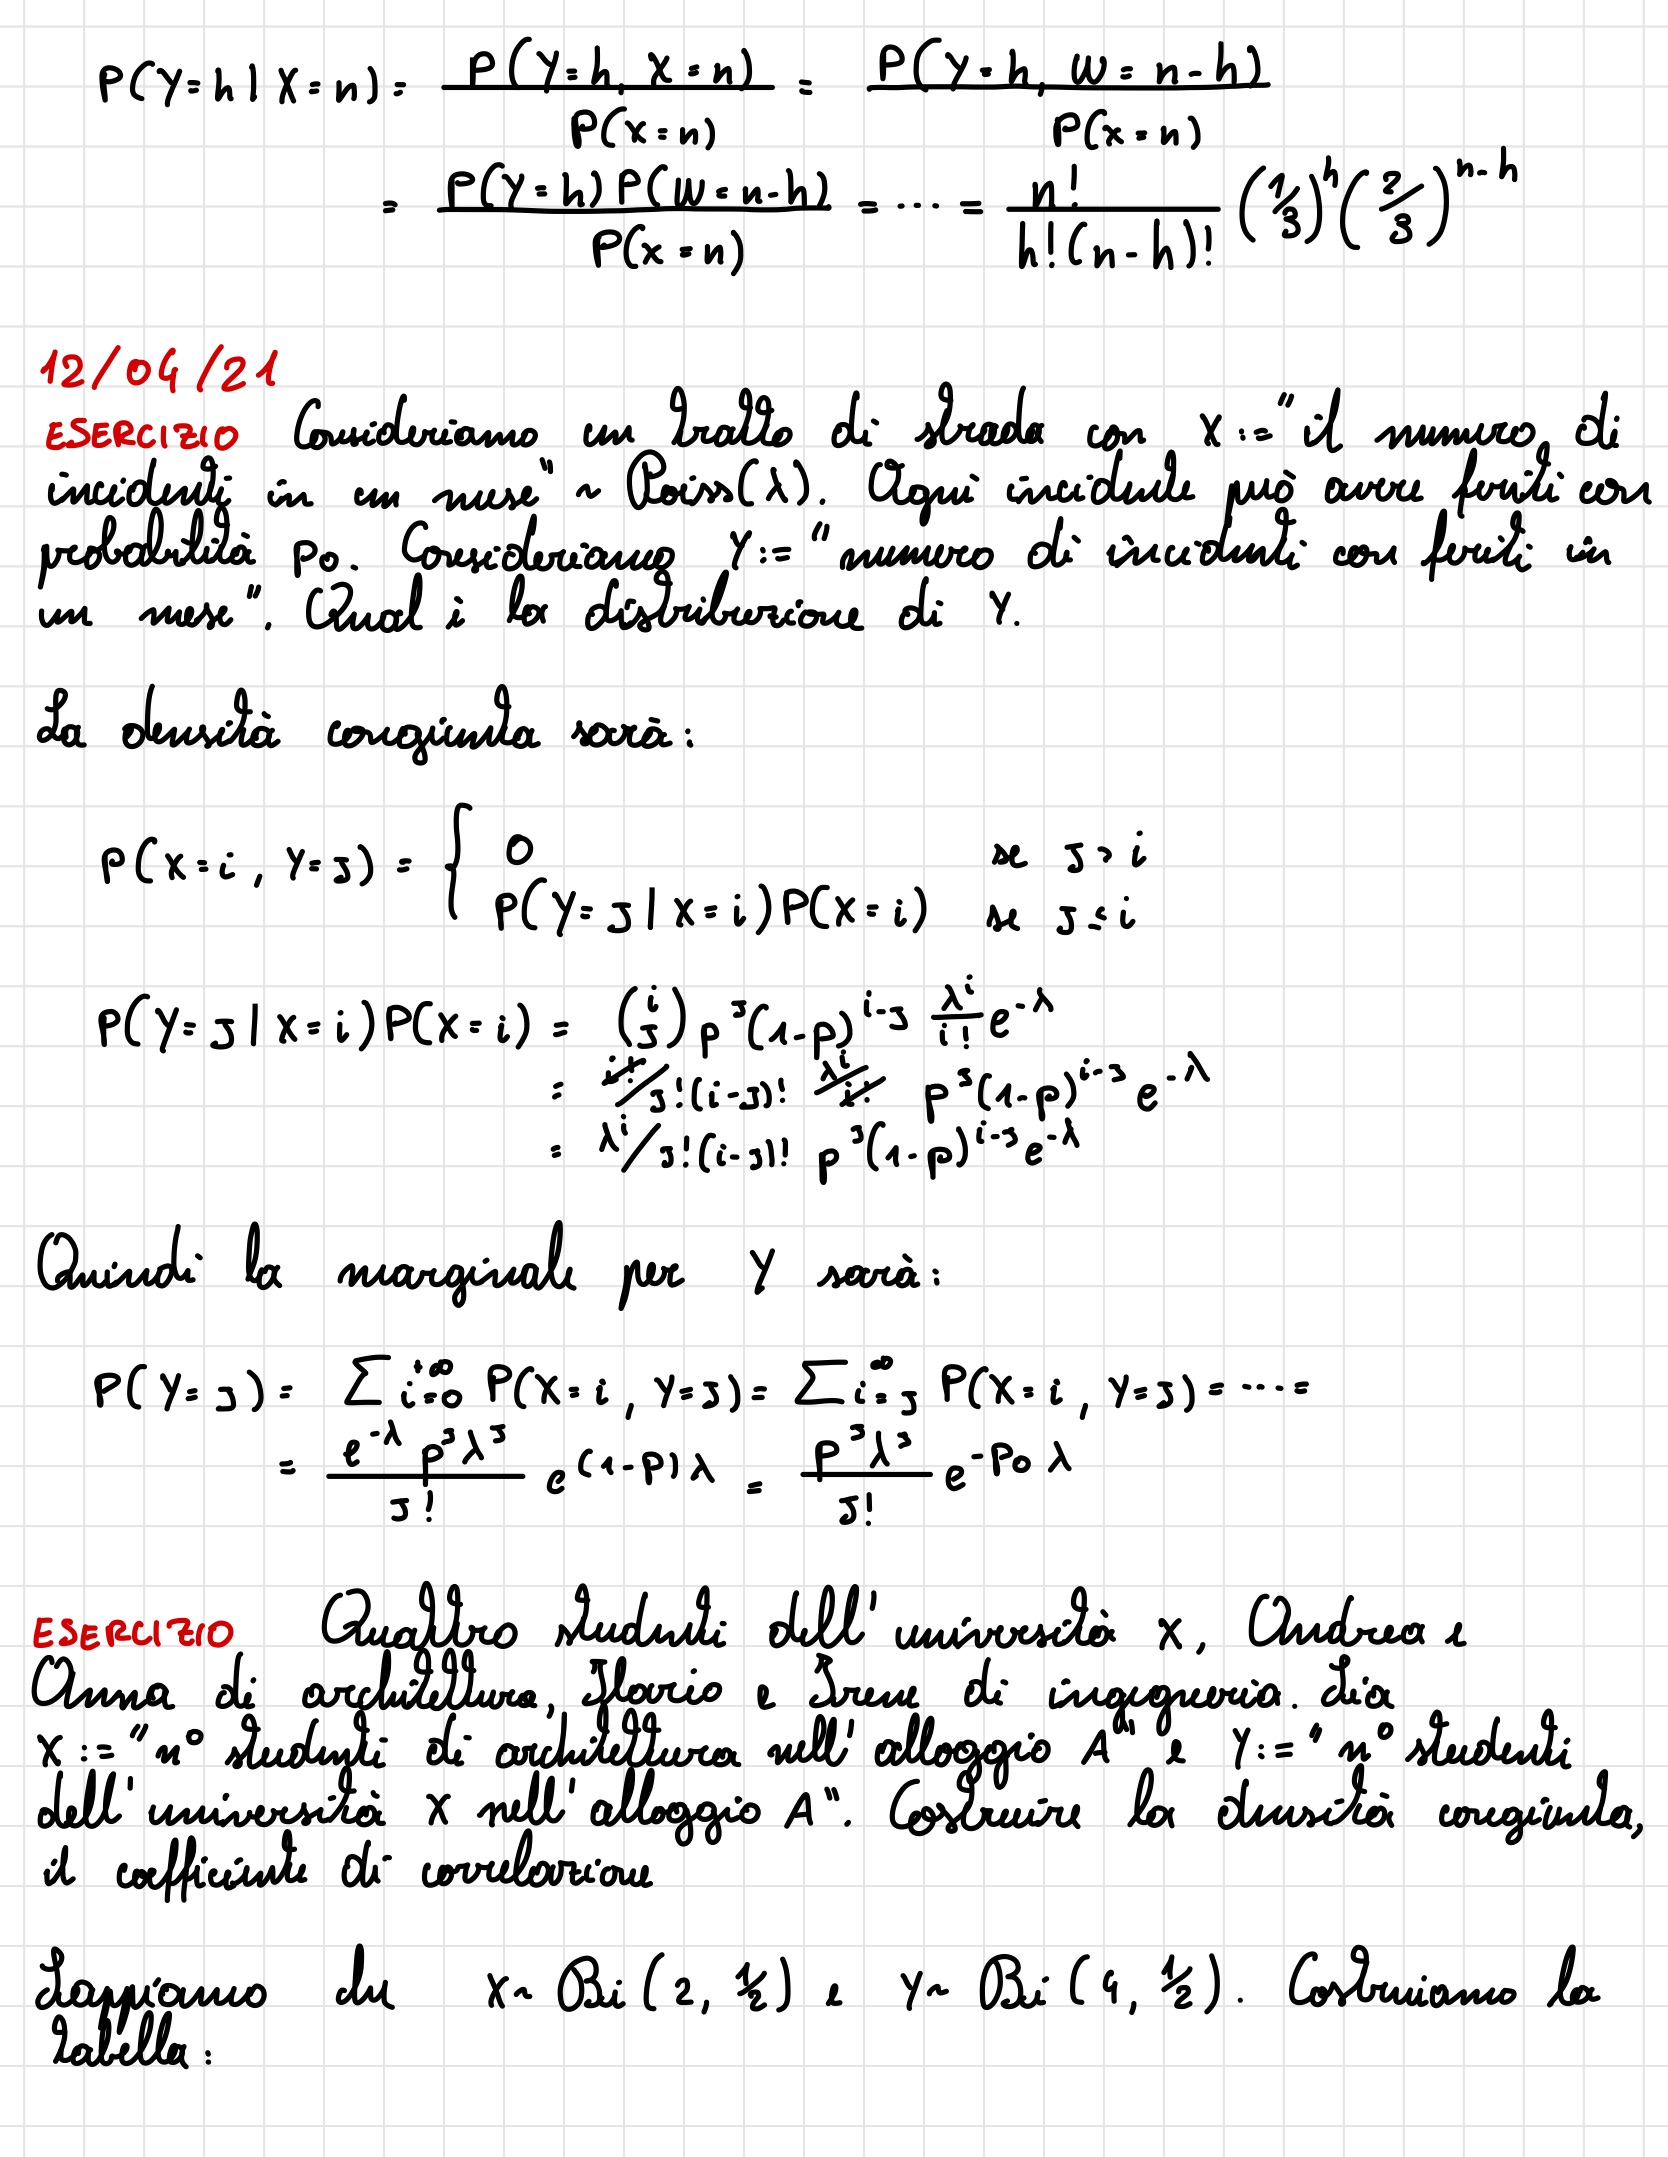 P(Y=h | X=n) = P(Y=h, X=n) / P(X=n) = P(Y=h, W=n-h) / P(X=n)
= P(Y=h) P(W=n-h) / P(X=n) = ... = n! / h!(n-h)! (1/3)^h (2/3)^{n-h}
12/04/21
ESERCIZIO Consideriamo un tratto di strada con X := "il numero di
incidenti in un mese" ~ Poiss(λ). Ogni incidente può avere feriti con
probabilità p0. Consideriamo Y := "numero di incidenti con feriti in
un mese". Qual è la distribuzione di Y.
La densità congiunta sarà:
P(X=i, Y=J) = { 0 se J > i
P(Y=J | X=i) P(X=i) se J ≤ i
P(Y=J | X=i) P(X=i) = (i J) p^J (1-p)^{i-J} λ^i / i! e^{-λ}
= i! / J!(i-J)! λ^i / i! p^J (1-p)^{i-J} e^{-λ}
= λ^i / J!(i-J)! p^J (1-p)^{i-J} e^{-λ}
Quindi la marginale per Y sarà:
P(Y=J) = Σ_{i=0}^{+∞} P(X=i, Y=J) = Σ_{i=J}^{∞} P(X=i, Y=J) = ... =
= e^{-λ} p^J λ^J / J! e^{(1-p)λ} = p^J λ^J / J! e^{-p0 λ}
ESERCIZIO Quattro studenti dell'università X, Andrea e
Anna di architettura, Ilario e Irene di ingegneria. Sia
X := "n° studenti di architettura nell'alloggio A" e Y := "n° studenti
dell'università X nell'alloggio A". Costruire la densità congiunta,
il coefficiente di correlazione
Sappiamo che X ~ Bi(2, 1/2) e Y ~ Bi(4, 1/2). Costruiamo la
tabella: